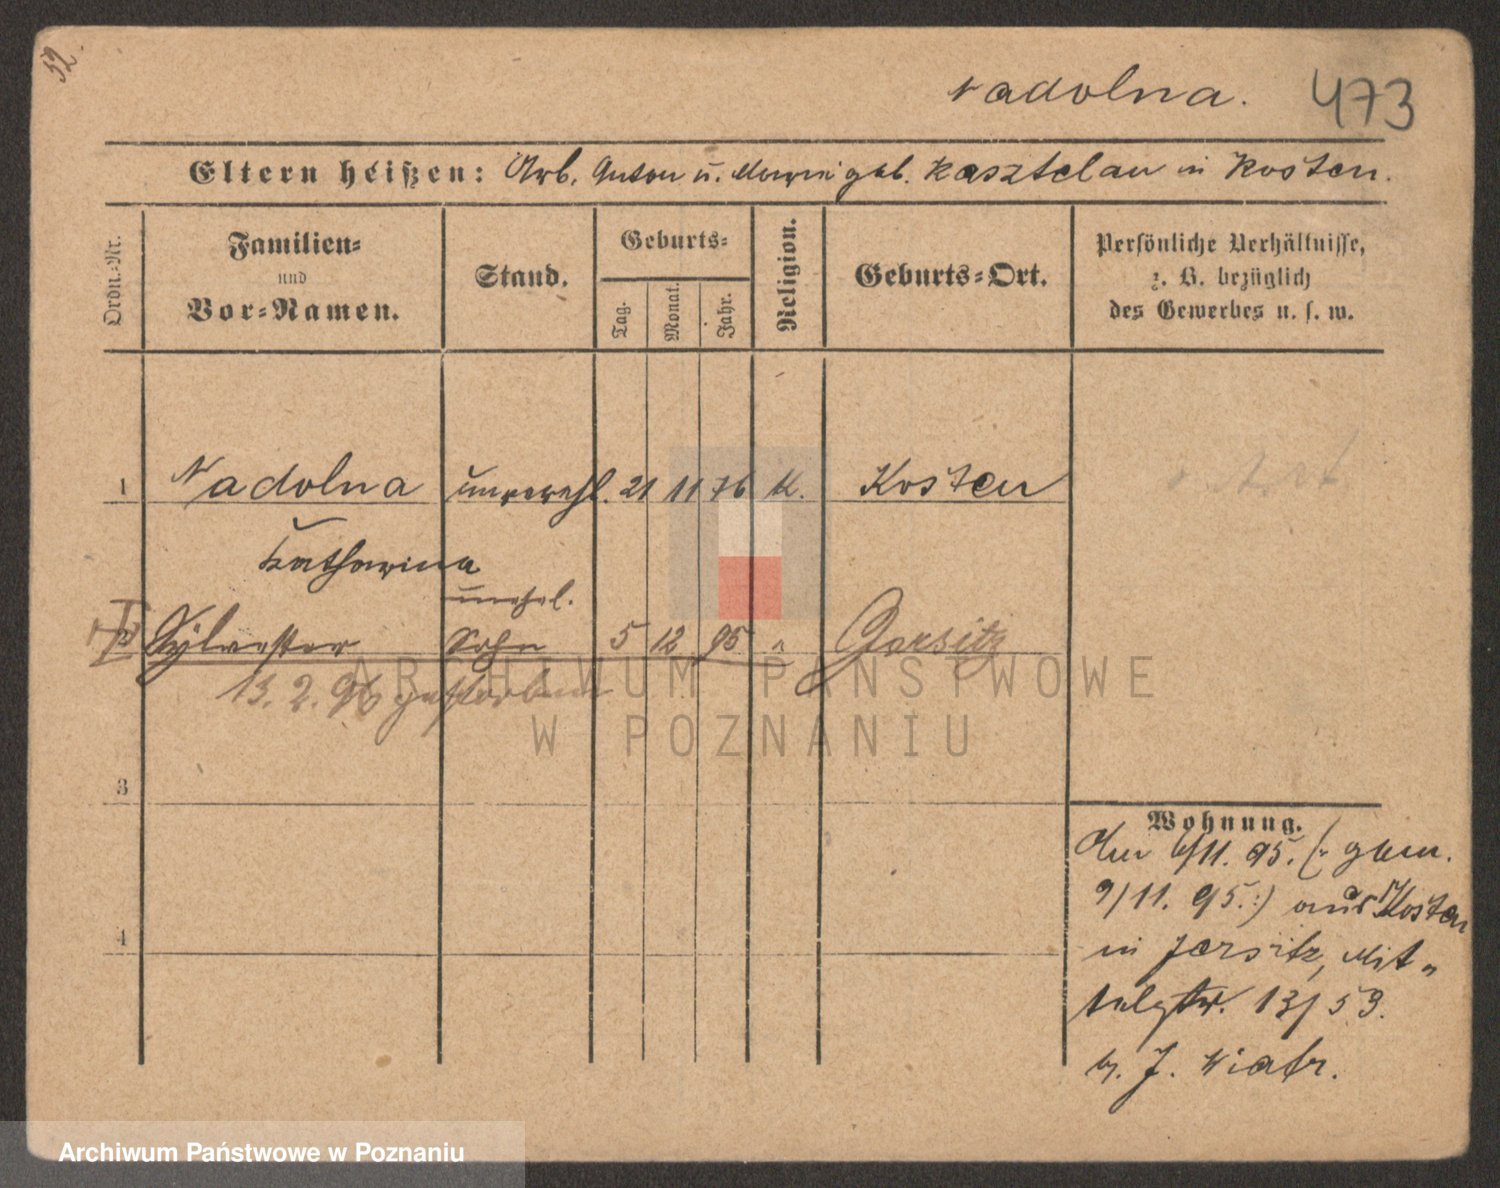 52.
Nadolna. 473
Eltern heißen: Arb. Anton u. Marie geb. Kasztelan in Kosten.
Ordn.-Nr.
Familien-
und
Vor-Namen.
Stand.
Geburts-
Tag.
Monat.
Jahr.
Religion.
Geburts-Ort.
Persönliche Verhältnisse,
z. B. bezüglich
des Gewerbes u. s. w.
1 Nadolna unverehl. 21 11 76 K. Kosten
Katharina
unehel.
2 Sylvester Sohn 5 12 95 " Gersitz
13. 2. 96 gestorben
ARCHIWUM PAŃSTWOWE
W POZNANIU
3
4
Wohnung.
Am 6/11. 95. (: gem.
9/11. 95. :) aus Kosten
in Jersitz, Mit-
telstr. 13/59.
b. J. Wiatr.
Archiwum Państwowe w Poznaniu